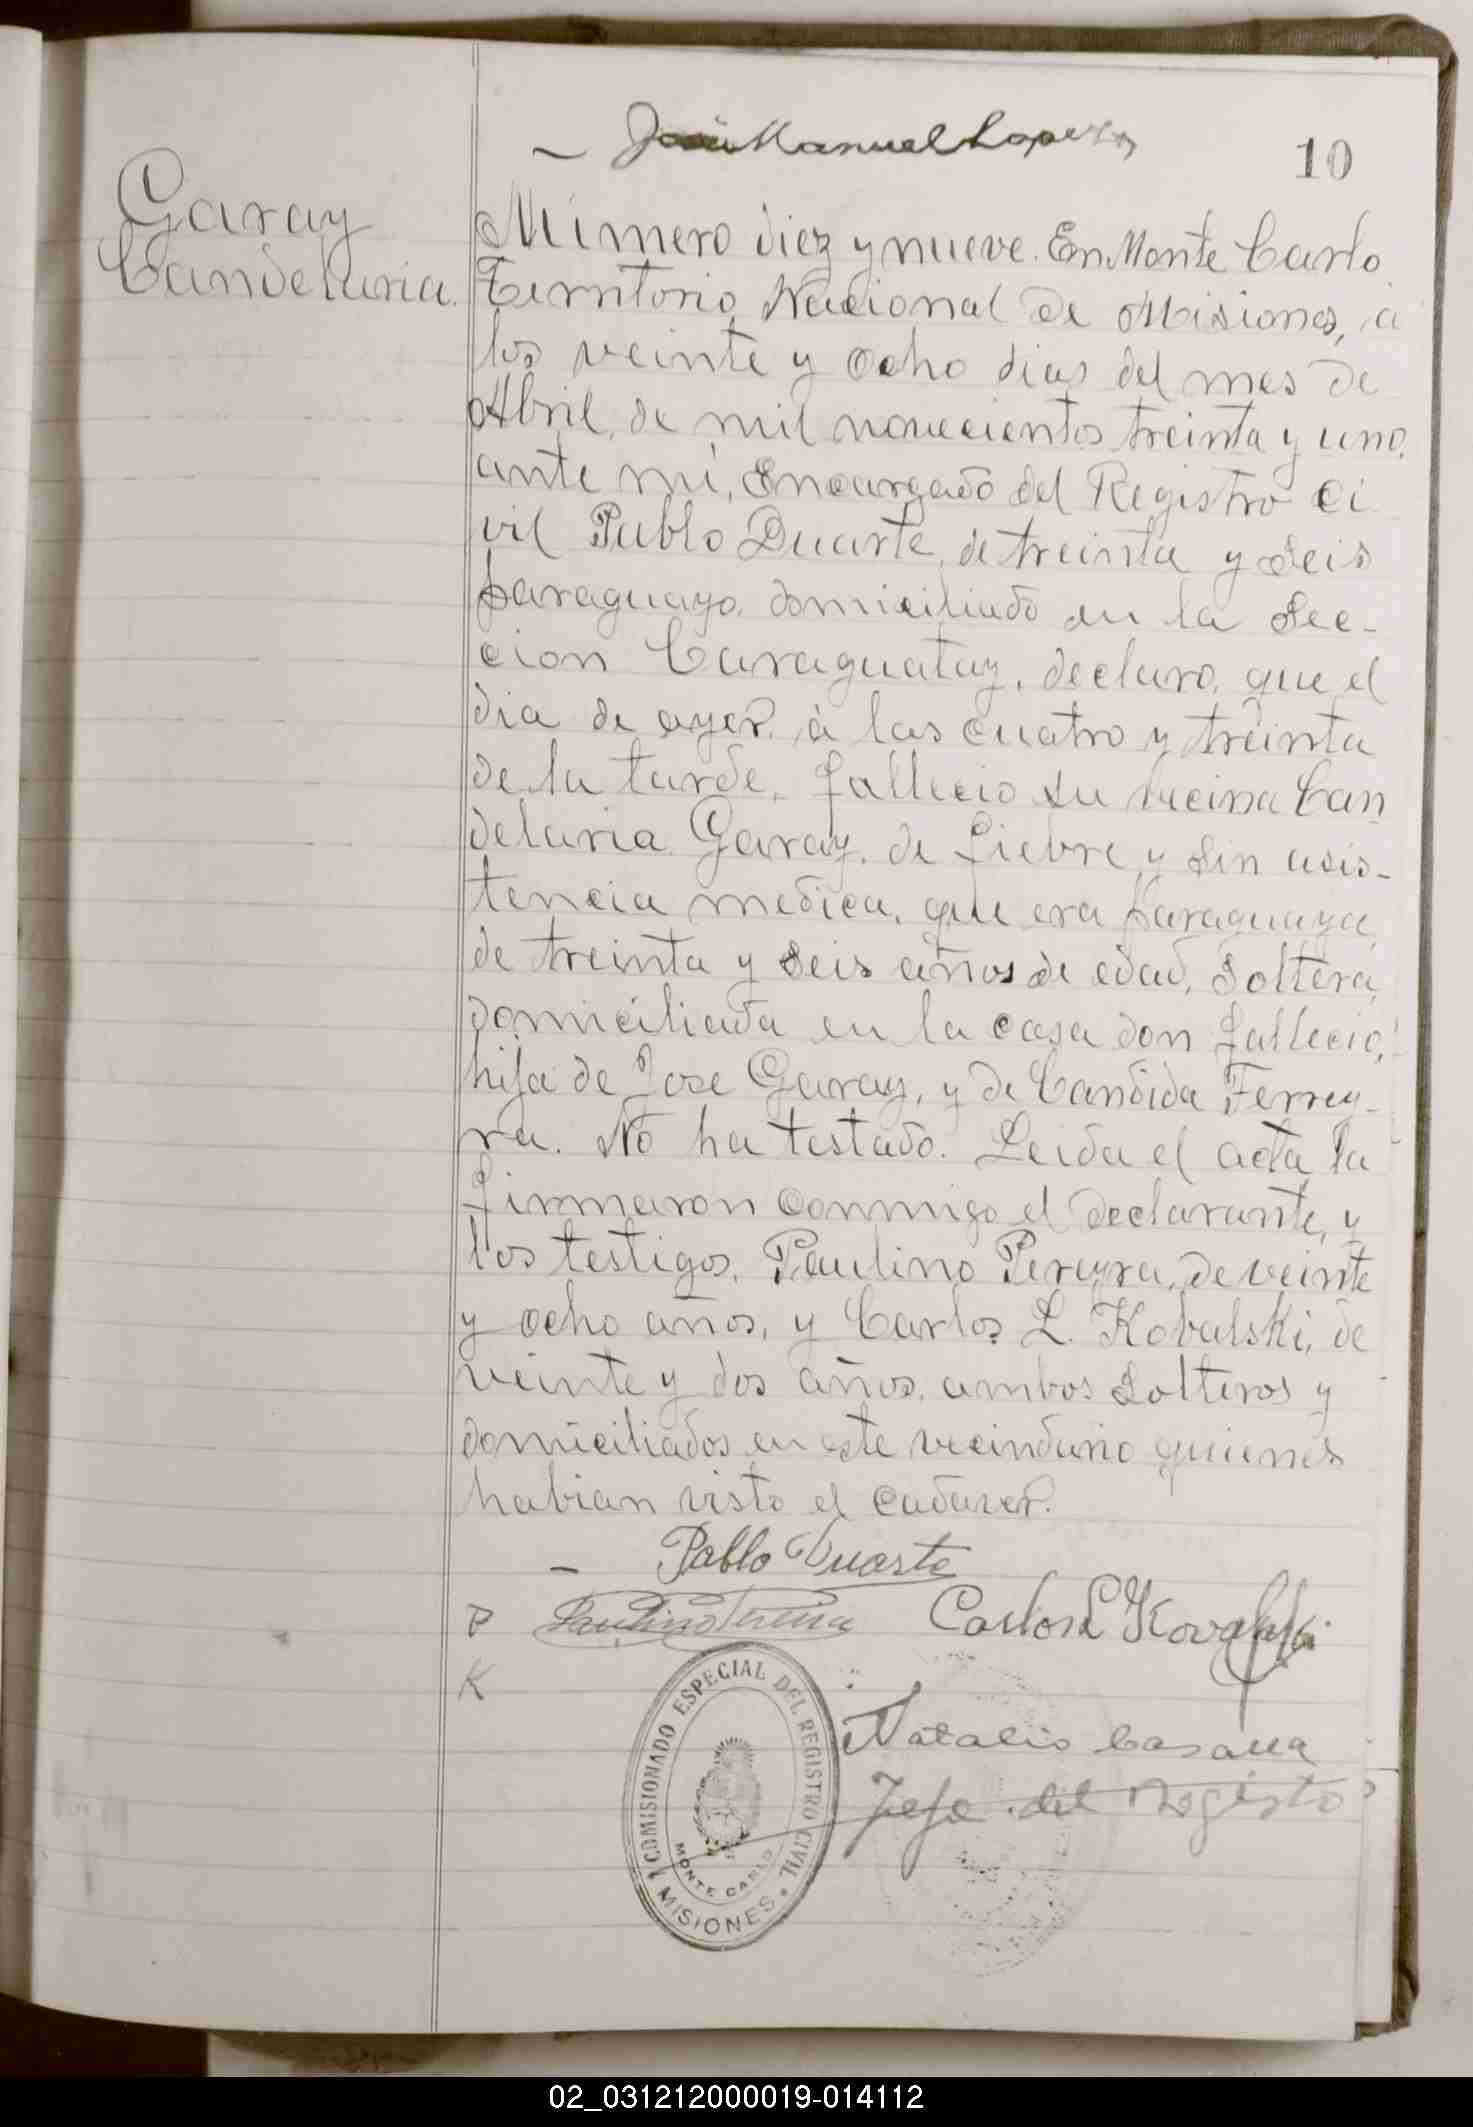 José Manuel Lopez
10
Garay
Candelaria.
Número diez y nueve. En Monte Carlo
Territorio Nacional de Misiones, á
los veinte y ocho dias del mes de
Abril, de mil novecientos treinta y uno,
ante mi, Encargado del Registro Ci
vil Pablo Duarte, de treinta y seis
paraguayo. domiciliado en la Sec-
cion Caraguatay, declaro, que el
dia de ayer. á las cuatro y treinta
de la tarde. fallecio su vecina Can
delaria Garay. de fiebre y sin asis-
tencia medica, que era paraguaya
de treinta y seis años de edad, soltera,
domiciliada en la casa don fallecio,
hija de Jose Garay, y de Candida Ferrey-
ra. No ha testado. Leida el acta la
firmaron conmigo el declarante, y
los testigos, Paulino Pereyra, de veinte
y ocho años, y Carlos L. Kobalski, de
veinte y dos años, ambos solteros y
domiciliados en este vecindario quienes
habian visto el cadaver.
Pablo Duarte
P Paulino Pereira Carlos L Kovalski
K
Natalio Casana
Jefe del Registro
COMISIONADO ESPECIAL DEL REGISTRO CIVIL
MONTE CARLO
MISIONES
02_031212000019-014112